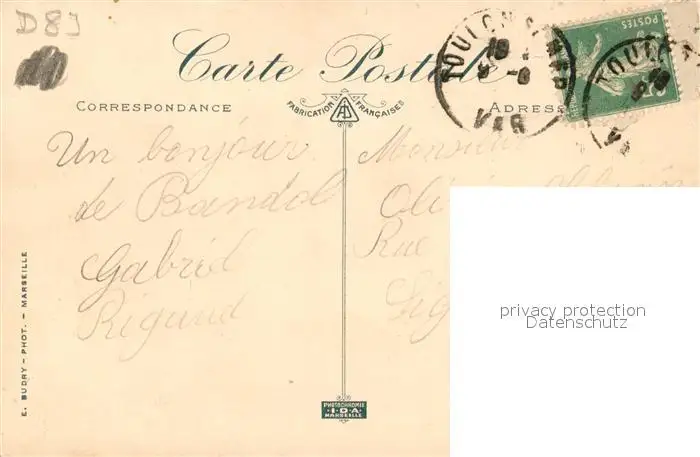 D83
Carte Postale
CORRESPONDANCE
FABRICATION FRANÇAISE
ADRESSE
TOULON
VAR
TOULON
POSTES
Un bonjour
de Bandol
Gabriel
Rigaud
Monsieur
Rue
E. BUDRY - PHOT. - MARSEILLE
PHOTOCHROMIE
I·D·A
MARSEILLE
privacy protection
Datenschutz